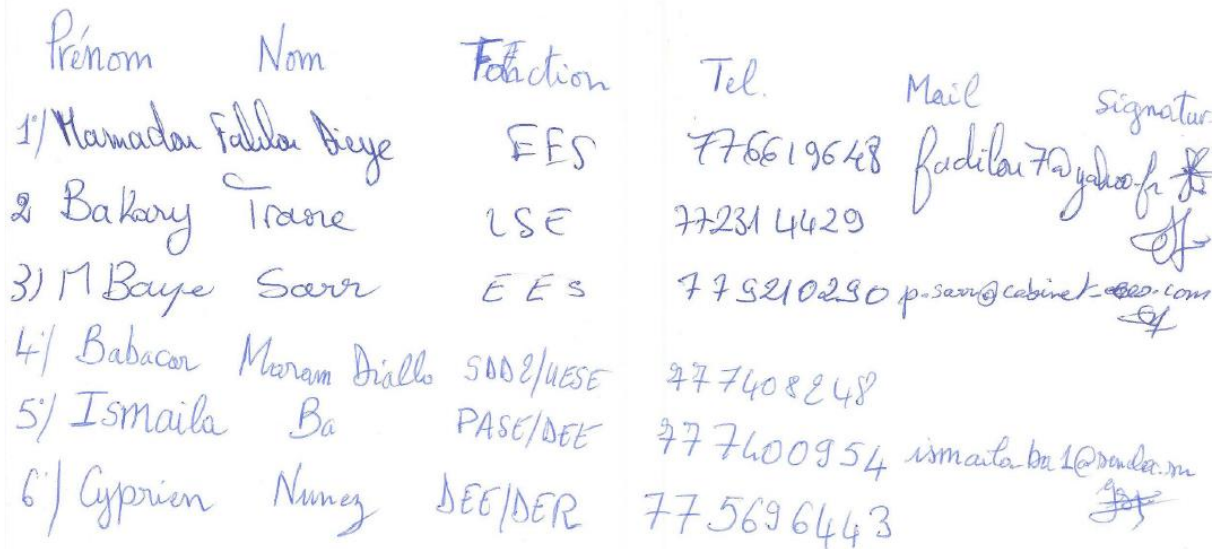 Prénom Nom Fonction Tel. Mail Signatur.
1°/ Mamadou Falilou Dieye EES 776619648 fadilou7@yahoo.fr
2 Bakary Traore LSE 772314429
3) MBaye Sarr EES 779210290 p.sarr@cabinet-eeo.com
4°/ Babacar Maram Diallo SDD2/UESE 777408248
5°/ Ismaila Ba PASE/DEE 777400954
6°/ Cyprien Nunez DEE/DER 775696443